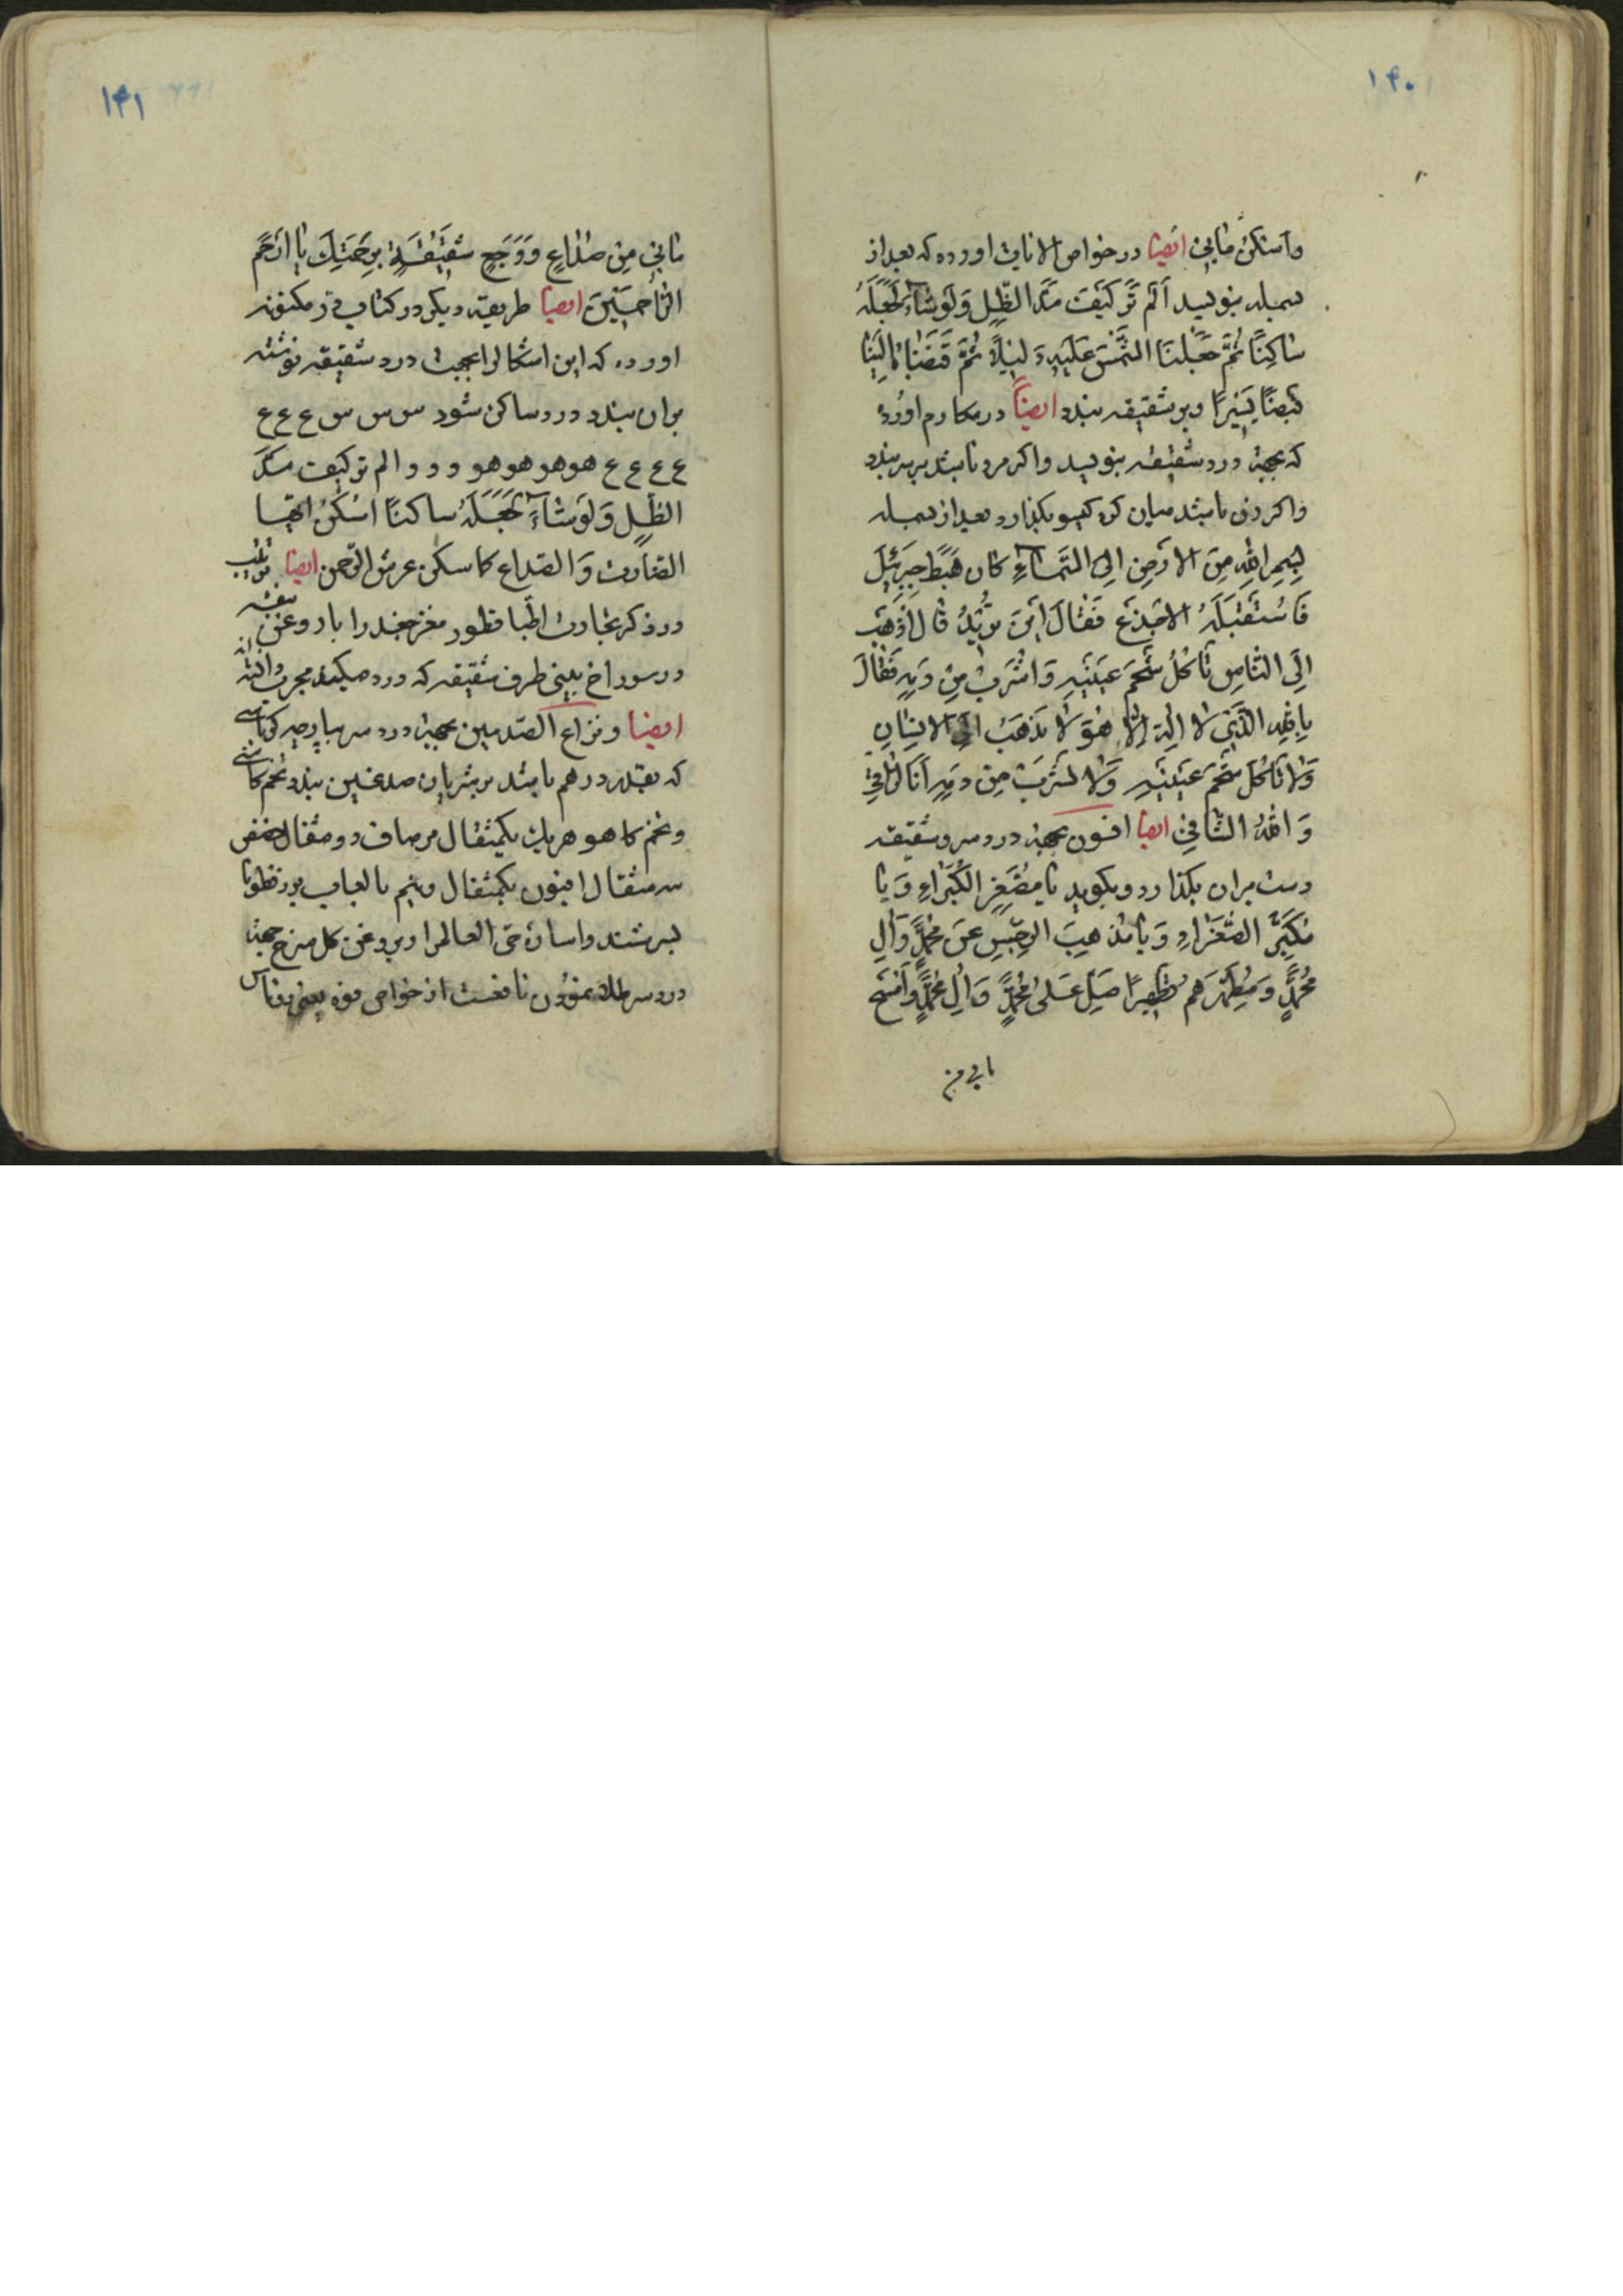 ۱۴۰
وَاسْکُنْ مٰا بِی ایضا در خواص الایات اورده که بعد از
بسمله بنویسد اَلَمْ تَرَ کَیْفَ مَدَّ الظِّلَ وَلَوْ شٰاءَ لَجَعَلَهُ
سٰاکِنًا ثُمَّ جَعَلْنَا الشَّمْسَ عَلَیْهِ دَلیٖلًا ثُمَّ قَبَضْنٰاهُ اِلَیْنٰا
قَبْضًا یَسٖیرًا و بر شقیقه بندد ایضاً در مکارم اورده
که بجهة درد شقیقه بنویسد و اکر مرد باشد بر سر بندد
و اکر زن باشد میان کره کیسو بکذارد بعد از بسمله
بِسْمِ اللهِ مِنَ الاَرْضِ اِلَی السَّمٰاءِ کٰانَ هَبَطَ جِبْرَئٖیلَ
فَاسْتَقْبَلَهُ الاَجْدَعُ فَقٰالَ اَیْنَ تُرٖیدُ قٰالَ اَذْهَبُ
اِلَی النّٰاسِ تَاکُلُ شَحْمَ عَیْنَیْهِ وَاشْرَبُ مِنْ دَمِهِ فَقٰالَ
بِاللهِ الَّذٖی لٰا اِلٰهَ اِلّٰا هُوَ لٰا تَذْهَبُ اِلَی الاِنْسٰانِ
وَلٰا تَاکُلَ شَحْمَ عَیْنَیْهِ وَلٰا تَشْرَبَ مِنْ دَمِهِ اَنَا الرّٰاقٖی
وَ اللهُ الشّٰافٖی ایضا افسون بجهة درد سر و شقیقه
دست بران بکذارد و بکوید یٰا مُصَغِّرَ الکُبَرٰاءِ وَ یٰا
مُکَبِّرَ الصُّغَرٰاءِ وَ یٰا مُذْهِبَ الرِّجْسِ عَنْ مُحَمَّدٍ وَ اٰلِ
مُحَمَّدٍ وَ مُطَهِّرَهُمْ تَطْهٖیرًا صَلِّ عَلیٰ مُحَمَّدٍ وَ اٰلِ مُحَمَّدٍ وَ امْسَحْ
مابی من
۱۴۱
مٰابٖی مِنْ صُدٰاعٍ وَ وَجَعِ شَقٖیقَةٍ بِرَحْمَتِکَ یٰا اَرْحَمَ
الرّٰاحِمٖینَ ایضا طریقه دیکر در کتاب در مکنونه
اورده که این اشکالرا بجهت درد شقیقه نوشته
بران بندد درد ساکن شود س س س ع ع ع
ع ع ع ع هو هو هو هو و و و الم تر کیف مَدَّ
الظِّلِ وَلَوْ شٰاءَ لَجَعَلَهُ ساکنًا اُسْکُنْ ایّها
الضارب وَ الصّداع کما سکن عرش الرّحمن ایضا
در ذکر تجارب اطّبا قطور مغز جغد را با روغن بنفشه
در سوراخ بینی طرف شقیقه که درد میکند مجرب دانسته اند
ایضا و نزاع الصّدمین بجهة درد سر بپارچه کرباسے
که بقدر درهم باشد بر شریان صدغین بندد تخم کاسنی
و تخم کاهو هر یک یکمثقال مر صاف دو مثقال حضض
سه مثقال افیون یکمثقال و نیم با لعاب بزر قطونا
بسرشند و اسان متی العالم را و بروغن کل سرخ جهة
درد سر طلا نمودن نافعست از خواص فوه یعنی روناس